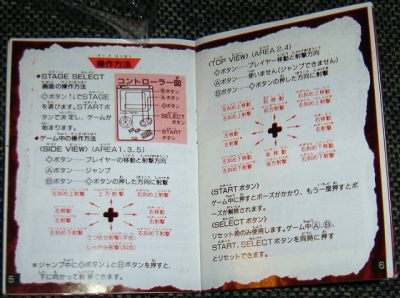 操作方法
●STAGE SELECT
画面の操作方法
✥ボタン↑↓でSTAGE
を選びます。STARTボ
タンで決定し、ゲームが
始まります。
●ゲーム中の操作方法
コントローラー図
✥ボタン
Ⓐボタン
Ⓑボタン
SELECT
ボタン
START
ボタン
(SIDE VIEW) (AREA1.3.5)
✥ボタン……プレイヤーの移動と射撃方向
Ⓐボタン……ジャンプ
Ⓑボタン……✥ボタンの押した方向に射撃
左斜め上射撃
上方射撃
右斜め上射撃
左移動
左射撃
右移動
右射撃
左斜め下射撃
右斜め下射撃
うつ伏せ射撃(平地)
しゃがみ射撃(斜面)
★ジャンプ中に✥ボタン↓とⒷボタンを押すと、
下に向かって射撃できます。
5
(TOP VIEW) (AREA 2.4)
✥ボタン……プレイヤー移動と射撃方向
Ⓐボタン……使いません(ジャンプできません)
Ⓑボタン……✥ボタンの押した方向に射撃
左斜め上移動
左斜め上射撃
前移動
前方射撃
右斜め上移動
右斜め上射撃
左移動
左射撃
右移動
右射撃
左斜め下移動
左斜め下射撃
後移動
後方射撃
右斜め下移動
右斜め下射撃
(STARTボタン)
ゲーム中に押すとポーズがかかり、もう一度押すとポ
ーズが解除されます。
(SELECTボタン)
リセット時のみ使用します。ゲーム中Ⓐ、Ⓑ、
START、SELECTボタンを同時に押す
とリセットできます。
6